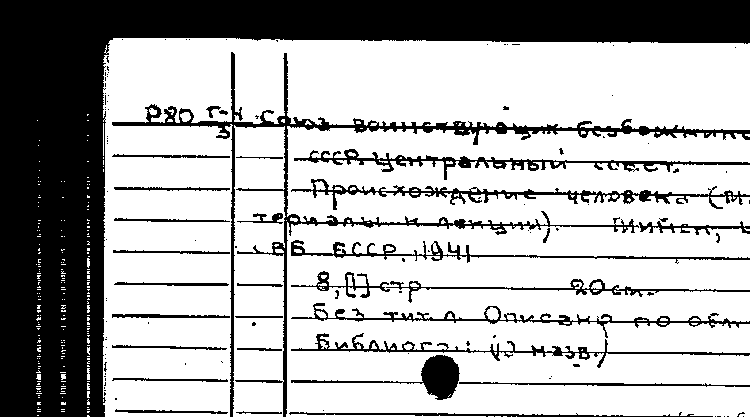 Р80 Г-4 Союз воинствующих безбожников
3
СССР. Центральный совет.
Происхождение человека (ма
териалы к лекции). Минск, Ц
СВБ БССР, 1941
8, [1] стр. 20 cm.
Без тит. л. Описано по обл.
Библиогр.: (10 назв.)